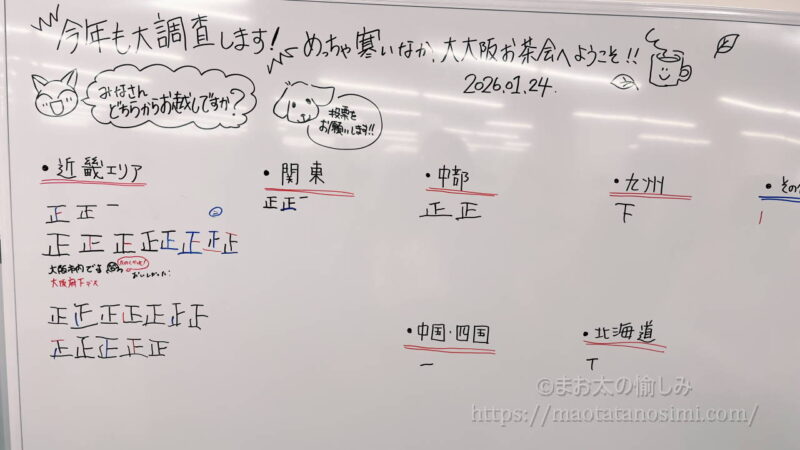 今年も大調査します! めっちゃ寒いなか、大大阪お茶会へようこそ!!
2026.01.24.
みなさん
どちらからお越しですか?
投票を
お願いします!!
・近畿エリア
正 正 一
正 正 正 正 正 正 正 正
大阪市内でも
たのしかった!
おいしかった!
大阪府下デス
正 正 正 正 正 正 正
正 正 正 正 正
・関東
正 正 一
・中部
正 正
・九州
下
・その
・中国・四国
一
・北海道
丅
©まお太の愉しみ
https://maotatanosimi.com/